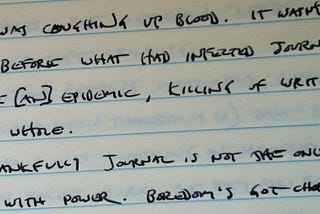 WAS COUGHING UP BLOOD. IT WASN'T
BEFORE WHAT HAD INFECTED JOURN
E [AN] EPIDEMIC, KILLING OF WRIT
WHOLE.
ANKFULLY JOURNAL IS NOT THE ONL
WITH POWER. BOREDOM'S GOT CHO